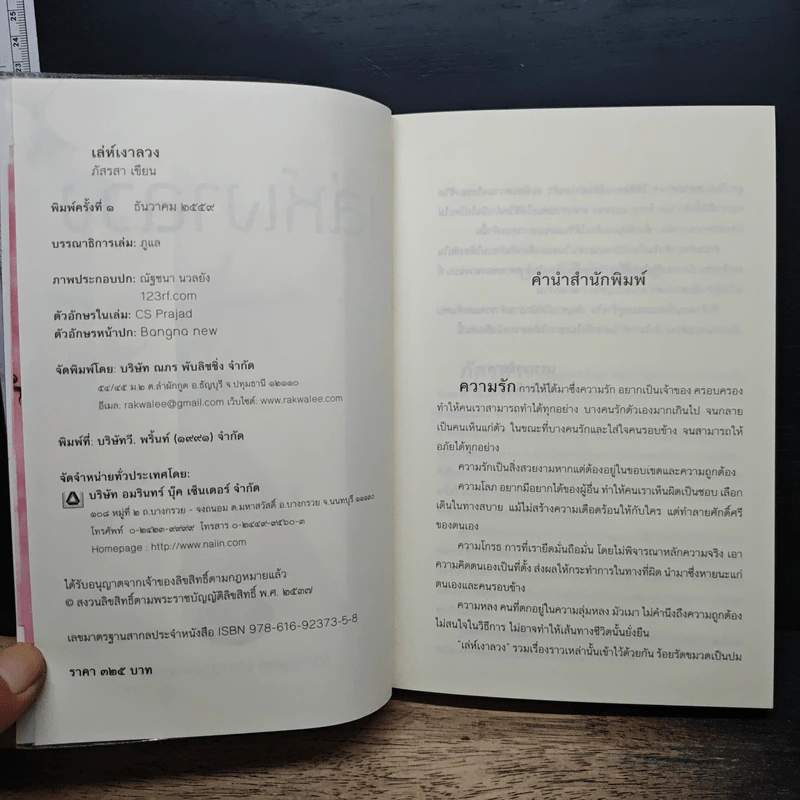 25
24
23
เล่ห์เงาลวง
ภัสรสา เขียน
พิมพ์ครั้งที่ ๑ ธันวาคม ๒๕๕๙
บรรณาธิการเล่ม: ภูแล
ภาพประกอบปก: ณัฐชนา นวลยัง
123rf.com
ตัวอักษรในเล่ม: CS Prajad
ตัวอักษรหน้าปก: Bangna new
จัดพิมพ์โดย: บริษัท ณภร พับลิชชิ่ง จำกัด
๕๔/๔๕ ม.๒ ต.ลำผักกูด อ.ธัญบุรี จ.ปทุมธานี ๑๒๑๑๐
อีเมล: rakwalee@gmail.com เว็บไซต์: www.rakwalee.com
พิมพ์ที่: บริษัทวี. พริ้นท์ (๑๙๙๑) จำกัด
จัดจำหน่ายทั่วประเทศโดย:
บริษัท อมรินทร์ บุ๊ค เซ็นเตอร์ จำกัด
๑๐๘ หมู่ที่ ๒ ถ.บางกรวย - จงถนอม ต.มหาสวัสดิ์ อ.บางกรวย จ.นนทบุรี ๑๑๑๓๐
โทรศัพท์ ๐-๒๔๒๓-๙๙๙๙ โทรสาร ๐-๒๔๔๙-๙๕๖๐-๓
Homepage : http://www.naiin.com
ได้รับอนุญาตจากเจ้าของลิขสิทธิ์ตามกฎหมายแล้ว
© สงวนลิขสิทธิ์ตามพระราชบัญญัติลิขสิทธิ์ พ.ศ. ๒๕๓๗
เลขมาตรฐานสากลประจำหนังสือ ISBN 978-616-92373-5-8
ราคา ๓๒๕ บาท
คำนำสำนักพิมพ์
ความรัก การให้ได้มาซึ่งความรัก อยากเป็นเจ้าของ ครอบครอง
ทำให้คนเราสามารถทำได้ทุกอย่าง บางคนรักตัวเองมากเกินไป จนกลาย
เป็นคนเห็นแก่ตัว ในขณะที่บางคนรักและใส่ใจคนรอบข้าง จนสามารถให้
อภัยได้ทุกอย่าง
ความรักเป็นสิ่งสวยงามหากแต่ต้องอยู่ในขอบเขตและความถูกต้อง
ความโลภ อยากมีอยากได้ของผู้อื่น ทำให้คนเราเห็นผิดเป็นชอบ เลือก
เดินในทางสบาย แม้ไม่สร้างความเดือดร้อนให้กับใคร แต่ทำลายศักดิ์ศรี
ของตนเอง
ความโกรธ การที่เรายึดมั่นถือมั่น โดยไม่พิจารณาหลักความจริง เอา
ความคิดตนเองเป็นที่ตั้ง ส่งผลให้กระทำการในทางที่ผิด นำมาซึ่งหายนะแก่
ตนเองและคนรอบข้าง
ความหลง คนที่ตกอยู่ในความลุ่มหลง มัวเมา ไม่คำนึงถึงความถูกต้อง
ไม่สนใจในวิธีการ ไม่อาจทำให้เส้นทางชีวิตนั้นยั่งยืน
"เล่ห์เงาลวง" รวมเรื่องราวเหล่านั้นเข้าไว้ด้วยกัน ร้อยรัดขมวดเป็นปม